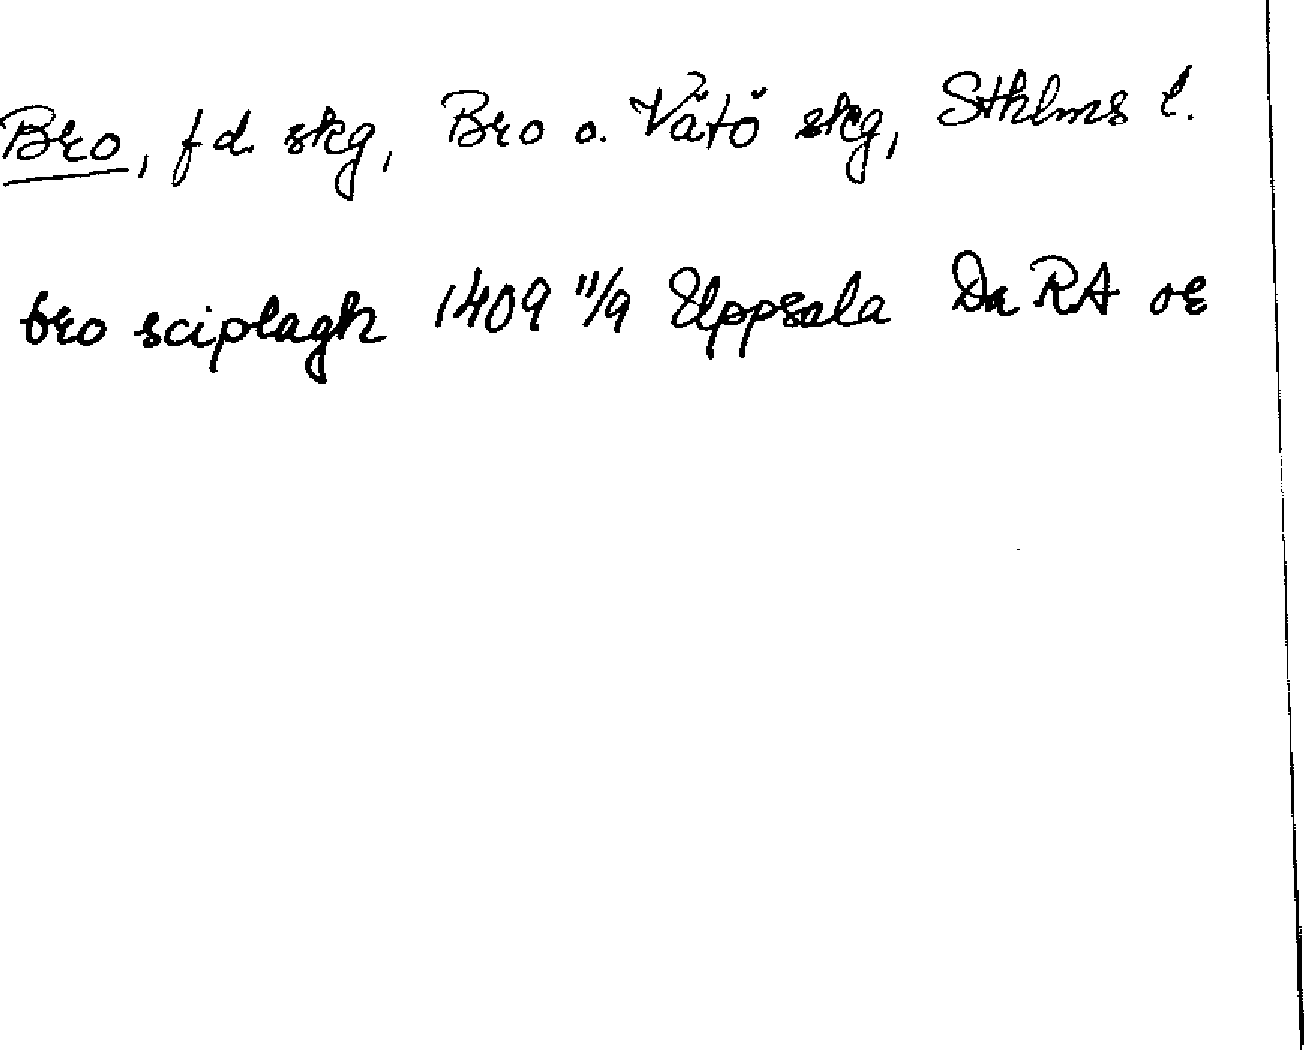 Bro, fd. skg, Bro o. Vätö skg, Sthlms l.
bro sciplagh 1409 11/9 Uppsala Da RA or